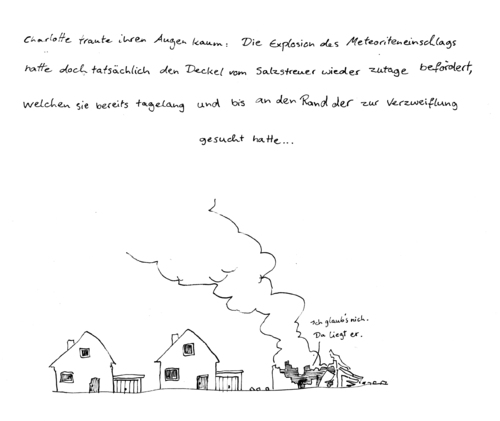 Charlotte traute ihren Augen kaum: Die Explosion des Meteoriteneinschlags
hatte doch tatsächlich den Deckel vom Salzstreuer wieder zutage befördert,
welchen sie bereits tagelang und bis an den Rand der zur Verzweiflung
gesucht hatte...
Ich glaub's nich.
Da liegt er.